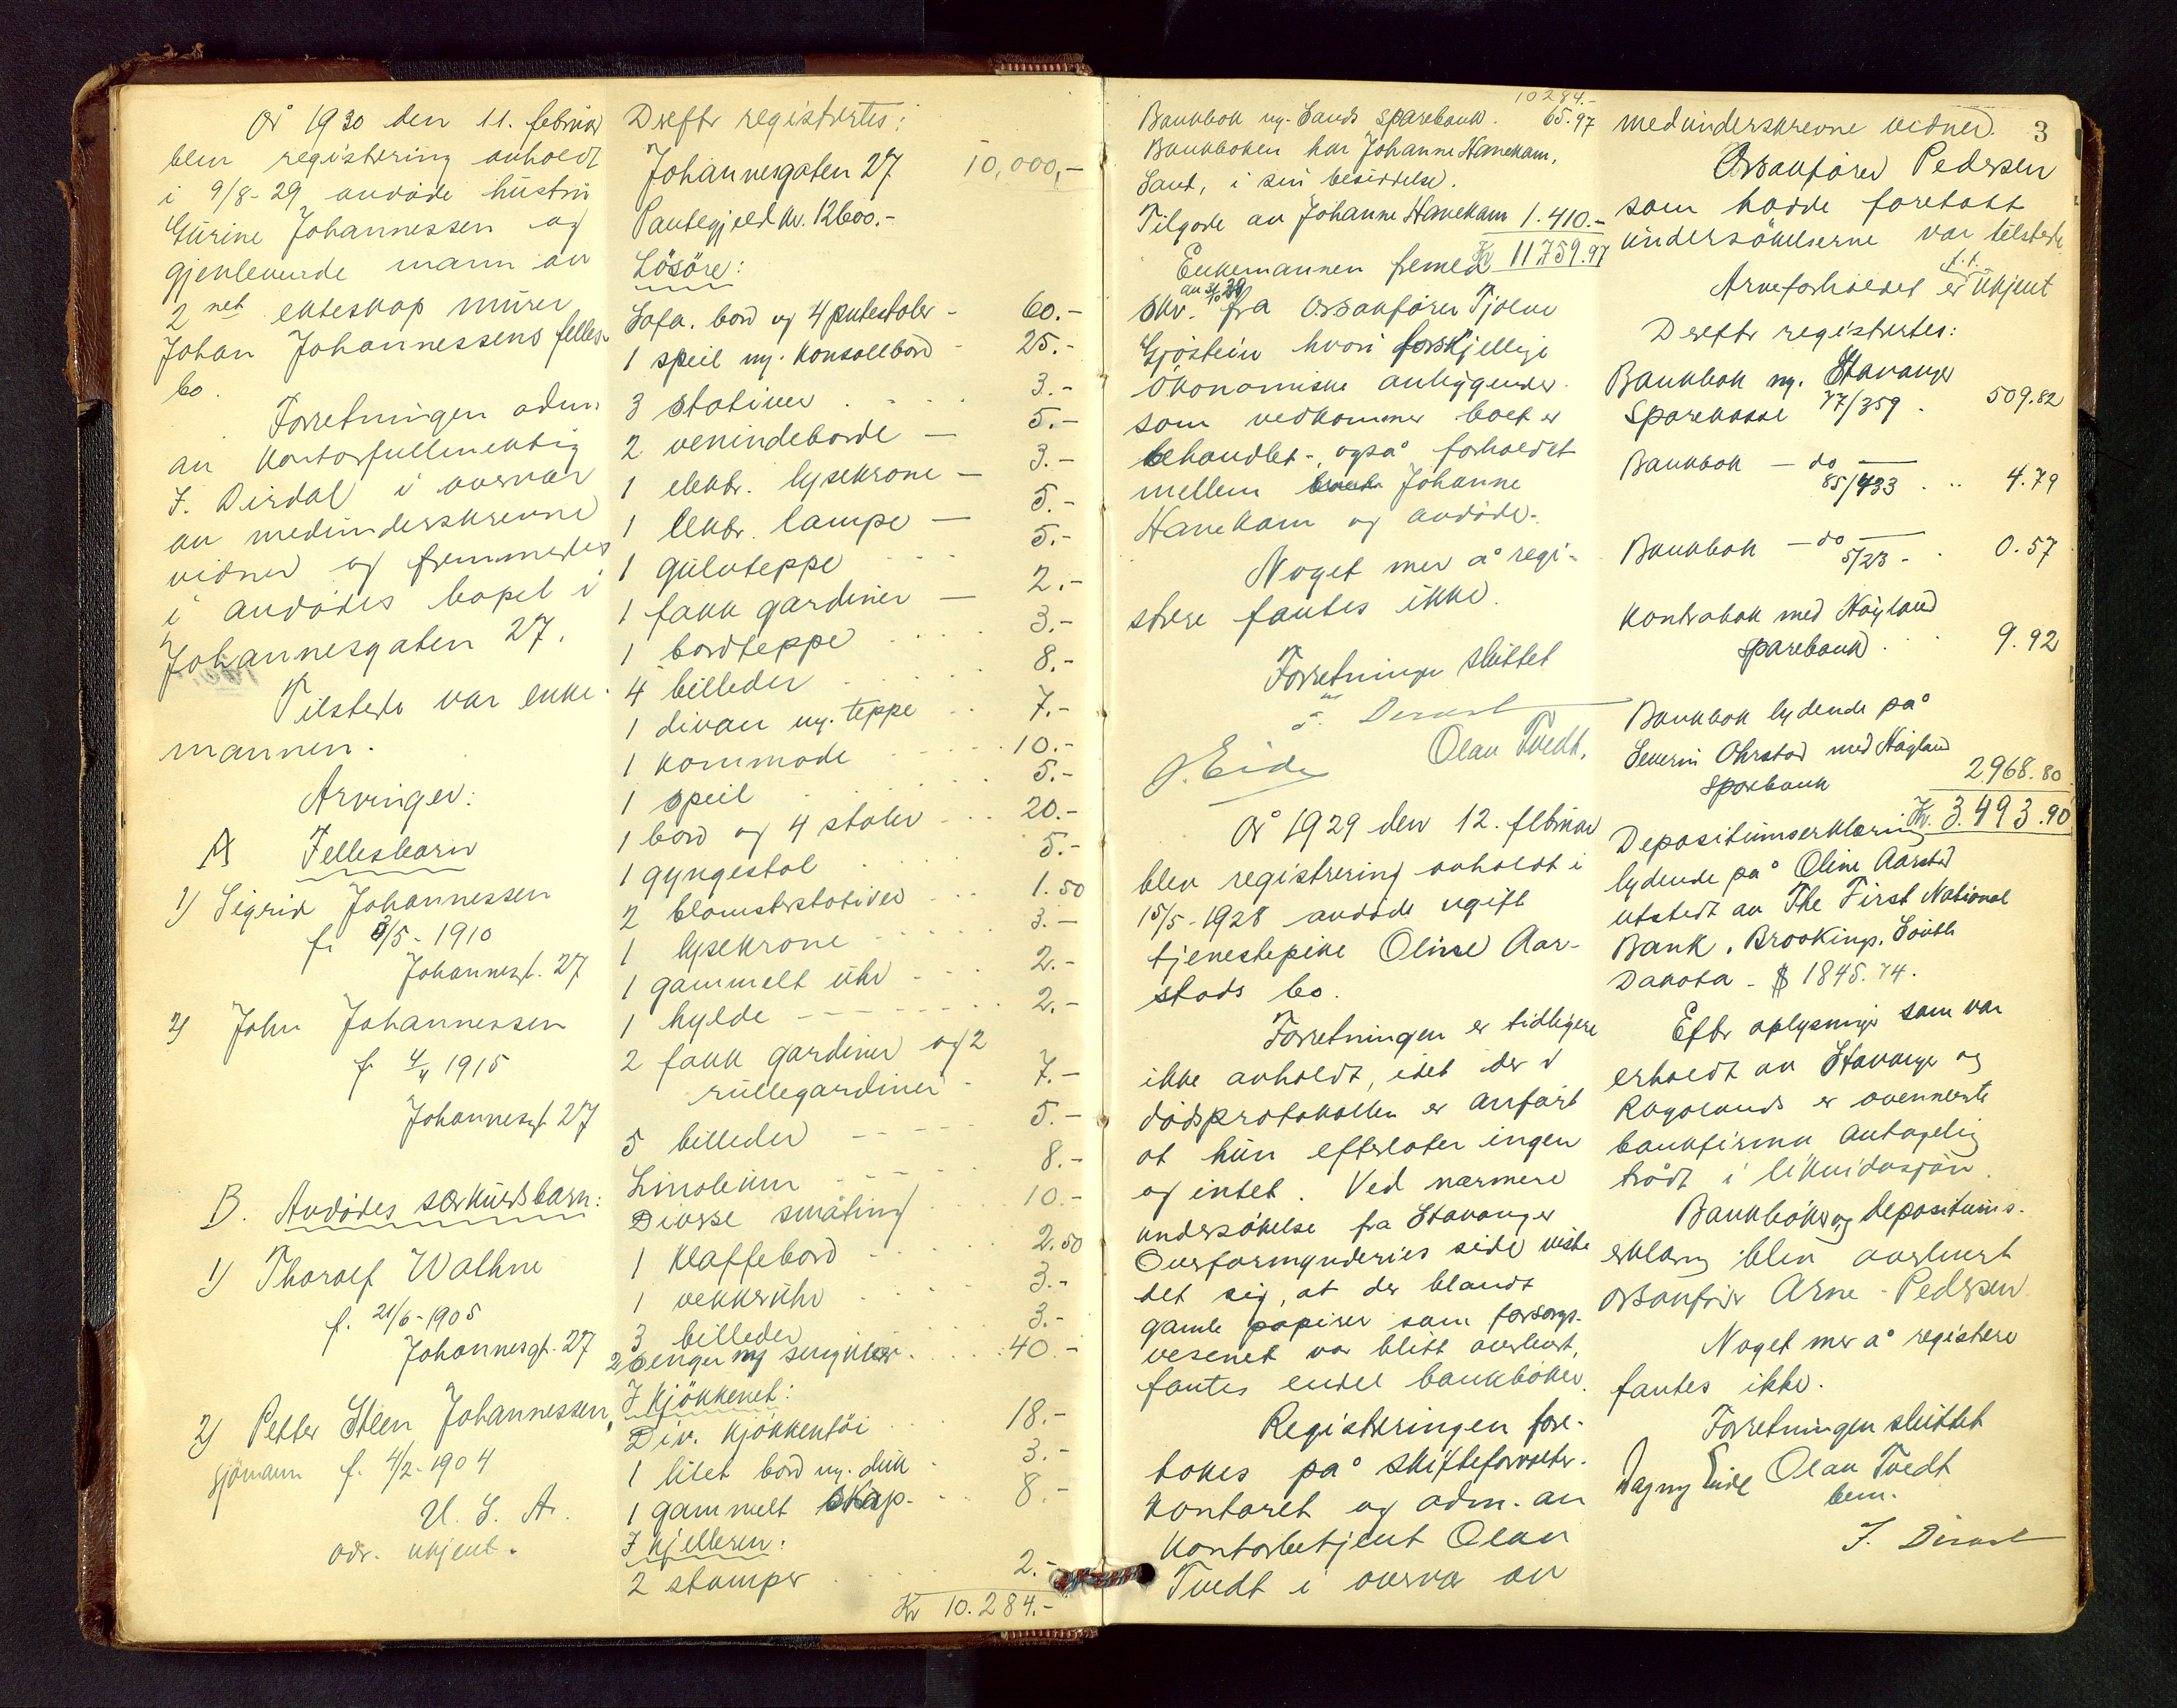 År 1930 den 11. februar
blev registrering avholdt
i 9/8-29 avdöde hustru
Gurine Johannessen og
gjenlevende mann av
2net ekteskap murer
Johan Johannessens felles-
bo.
Forretningen adm.
av kontorfullmektig
J. Dirdal i overvær
av medunderskrevne
vidner og fremmedes
i avdödes bopel i
Johannesgaten 27.
Tilstede var enke-
mannen.
Arvinger:
A Fellesbarn
1) Sigrid Johannessen
f. 3/5-1910
Johannesgt. 27
2) John Johannessen
f. 4/4 1915
Johannesgt 27
B. Avdödes særkuldsbarn:
1) Thoralf Walhne
f. 21/6-1905
Johannesgt. 27
2) Petter Steen Johannessen,
sjömann f. 4/2-1904
U. S. A.
adr. ukjent.
Derefter registrertes:
Johannesgaten 27 10,000,-
Pantegjeld kr. 12600.-
Lösöre:
Sofa. bord og 4 putestoler - 60.-
1 speil og. konsollbord - 25.-
3 stativer . . . . 3.-
2 venindeborde - 5.-
1 elektr. lysekrone - 3.-
1 lektr. lampe - 5.-
1 gulvteppe . . . 5.-
1 fakk gardiner - 2.-
1 bordteppe . . . . 3.-
4 billeder . . . . 8.-
1 divan og. teppe . . 7.-
1 kommode . . . . 10.-
1 speil . . . . 5.-
1 bord og 4 stoler . . . 20.-
1 gyngestol . . . 5.-
2 blomsterstativer . . . 1.50
1 lysekrone - - - 3.-
1 gammelt uhr - - - 2.-
1 hylde - - - - 2.-
2 fakk gardiner og 2
rullegardiner - 7.-
5 billeder - - - - 5.-
Linoleum - - - 8.-
Diverse småting . . . 10.-
1 klaffebord - - - 2.50
1 vekkeruhr . . . 3.-
3 billeder . . . . 3.-
2 senger og sengklær . . . 40.-
I kjökkenet:
Div. kjökkentöi . . . 18.-
1 litet bord og. duk . 3.-
1 gammelt skap. . . 8.-
I kjelleren:
2 stamper . . . . 2.-
Kr 10.284.-
10284.-
Bankbok og. Sands sparebank. 65.97
Bankboken har Johanne Hanekam,
Sand, i sin besiddelse.
Tilgode av Johanne Hanekam 1.410.-
Kr 11759.97
Enkemannen fremla
skr. av 3/10 29 fra Ossakförer Tjolve
Gjöstein hvori forskjellige
ökonomiske anliggender
som vedkommer boet er
behandlet-, også forholdet
mellem Johanne
Hanekam og avdöde.
Noget mer å regi-
strere fantes ikke.
Forretningen sluttet
J. Dirdal
J. Eide Olav Tvedt.
År 1929 den 12. februar
blev registrering avholdt i
15/5-1928 avdöde ugift
tjenestepike Oline Aar-
stads bo.
Forretningen er tidligere
ikke avholdt, idet der i
dödsprotokollen er anfört
at hun efterlater ingen
og intet. Ved nærmere
undersökelse fra Stavanger
Overformynderies side viste
det sig, at der blandt
gamle papirer som forsorgs-
vesenet var blitt overlevert,
fantes endel bankböker.
Registreringen fore-
tokes på skifteforvalter-
kontoret og adm. av
kontorbetjent Olav
Tvedt i overvær av
3
medunderskrevne vidner.
Ossakförer Pedersen
som hadde foretatt
undersökelserne var tilstede
Arveforholdet er f.t. ukjent
Derefter registrertes:
Bankbok og. Stavanger
Sparekasse 77/359 . 509.82
Bankbok - do -
85/433 . . . 4.79
Bankbok - do -
5/23 - . 0.57
Kontrabok med Högland
sparebank . . 9.92
Bankbok lydende på
Severin Ohrstad med Högland
sparebank 2968.80
Kr. 3.493.90
Depositumserklæring
lydende på Oline Aarstad
utstedt av The First National
Bank, Brookings, South
Dakota - $ 1845.74.
Efter oplysninger som var
erholdt av Stavanger og
Rogalands er ovennevnte
bankfirma antagelig
trådt i likvidasjon.
Bankböker og depositums-
erklæring blev overlevert
ossakförer Arne Pedersen.
Noget mer å registrere
fantes ikke.
Forretningen sluttet
Dagny Eide Olav Tvedt
bem.
J. Dirdal